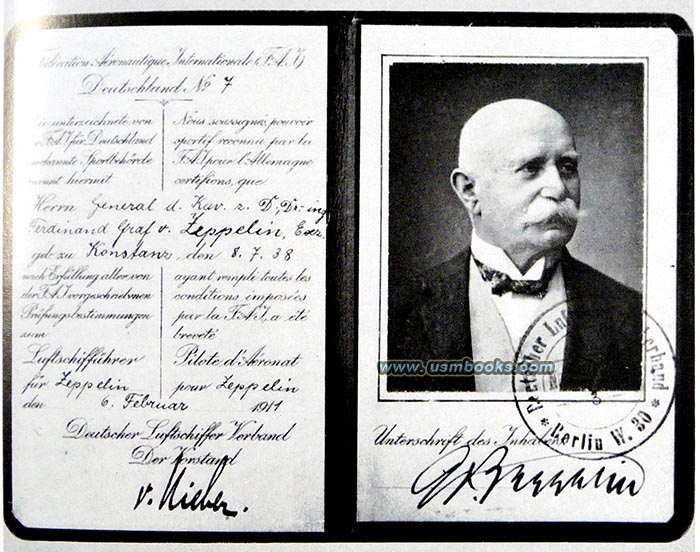 Fédération Aéronautique Internationale (F.A.I.)
Deutschland No 7
Die unterzeichnete von
der F.A.I. für Deutschland
anerkannte Sportbehörde
ernennt hiermit
Nous soussignés, pouvoir
sportif reconnu par la
F.A.I. pour l'Allemagne
certifions, que
Herrn General d. Kav. z. D., Dr.-ing.
Ferdinand Graf v. Zeppelin, Exz.
geb. zu Konstanz, den 8. 7. 38
nach Erfüllung aller von
der F.A.I. vorgeschriebenen
Prüfungsbestimmungen
zum
Luftschifführer
für Zeppelin
ayant rempli toutes les
conditions imposées
par la F.A.I., a été
breveté
Pilote d'Aéronat
pour Zeppelin
den 6. Februar 1911
Deutscher Luftschiffer Verband
Der Vorstand
v. Nieber.
www.usmbooks.com
Deutscher Verband
* Berlin W. 30 *
Unterschrift des Inhabers
Zeppelin